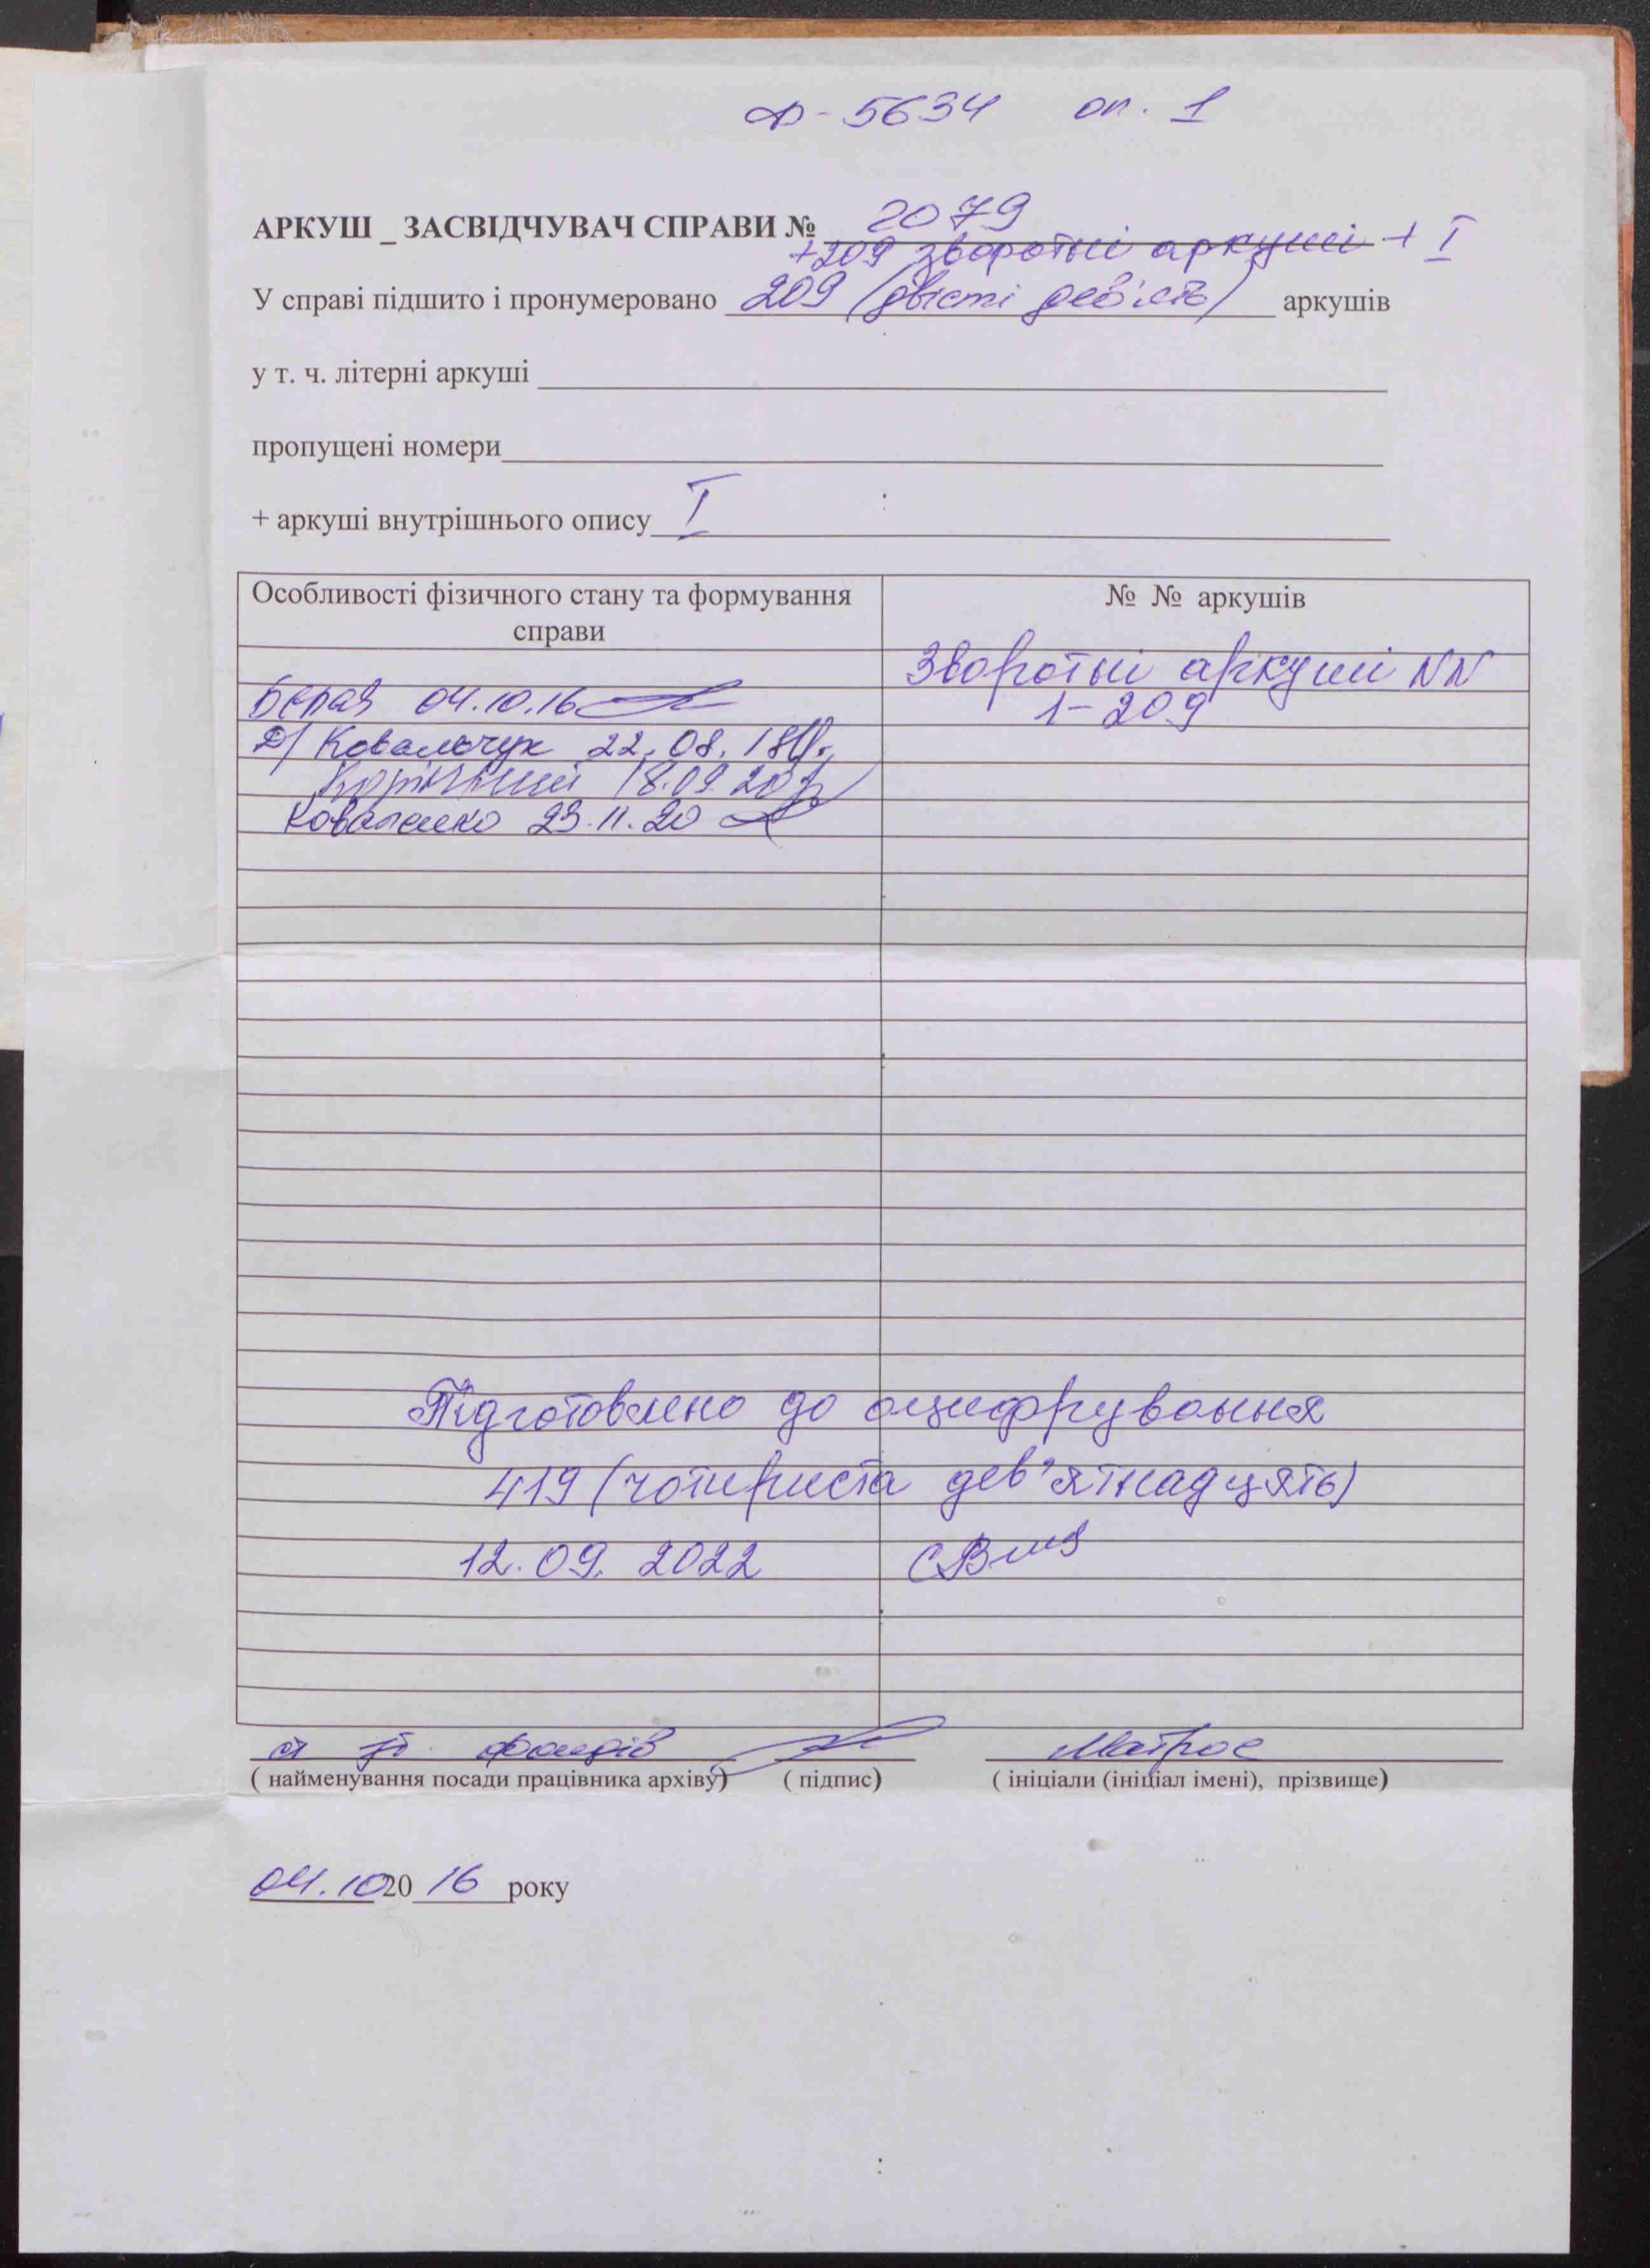 ф-5634 оп. 1
АРКУШ _ ЗАСВІДЧУВАЧ СПРАВИ № 2079
+209 зворотні аркуші + I
У справі підшито і пронумеровано 209 (двісті дев'ять) аркушів
у т. ч. літерні аркуші
пропущені номери
+ аркуші внутрішнього опису I
Особливості фізичного стану та формування справи
№ № аркушів
Зворотні аркуші NN
1-209
04.10.16
Ковальчук 22.08.18
18.09.20
Коваленко 23.11.20
Підготовлено до оцифрування
419 (чотириста дев'ятнадцять)
12.09.2022
фондів Матрос
( найменування посади працівника архіву) ( підпис) ( ініціали (ініціал імені), прізвище)
04.10 2016 року